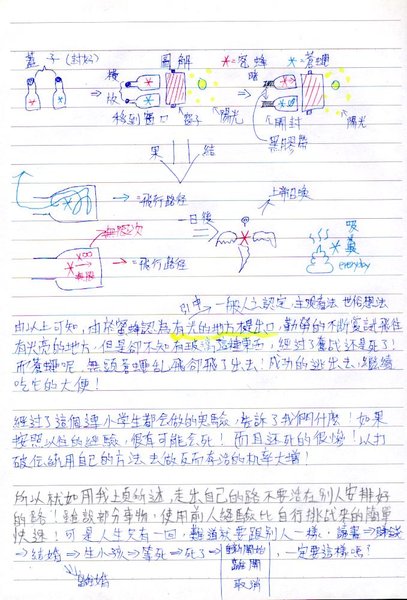 蓋子(封好)
圖解
*=蜜蜂
*=蒼蠅
橫放
移到窗口
窗子
陽光
開封
黑膠帶
陽光
結果
⇒=飛行路徑
一日後
上帝召喚
無限次
⇒=飛行路徑
吸糞
everyday
一般人之認定,主觀看法 世俗想法
由以上可知,由於蜜蜂認為有光的地方才是出口,勤勞的不斷嘗試飛往
有光亮的地方,但是卻不知有玻璃這種東西,經過了嘗試還是死了!
而蒼蠅呢 無頭蒼蠅亂飛卻飛了出去!成功的逃出去,繼續
吃它的大便!
經過了這個連小學生都會做的實驗,告訴了我們什麼!如果
按照以往的經驗,很有可能會死!而且還死的很慘!以打
破傳統用自己的方法去做反而存活的機率大增!
所以就如用我上頁所述,走出自己的路不要活在別人安排好
的路!雖說部分事物,使用前人經驗比自行挑戰來的簡單
快速!可是人生只有一回,難道就要跟別人一樣,讀書→賺錢
→結婚→生小孩→等死→死了→
重新開始
離開
取消
,一定要這樣嗎?
離婚